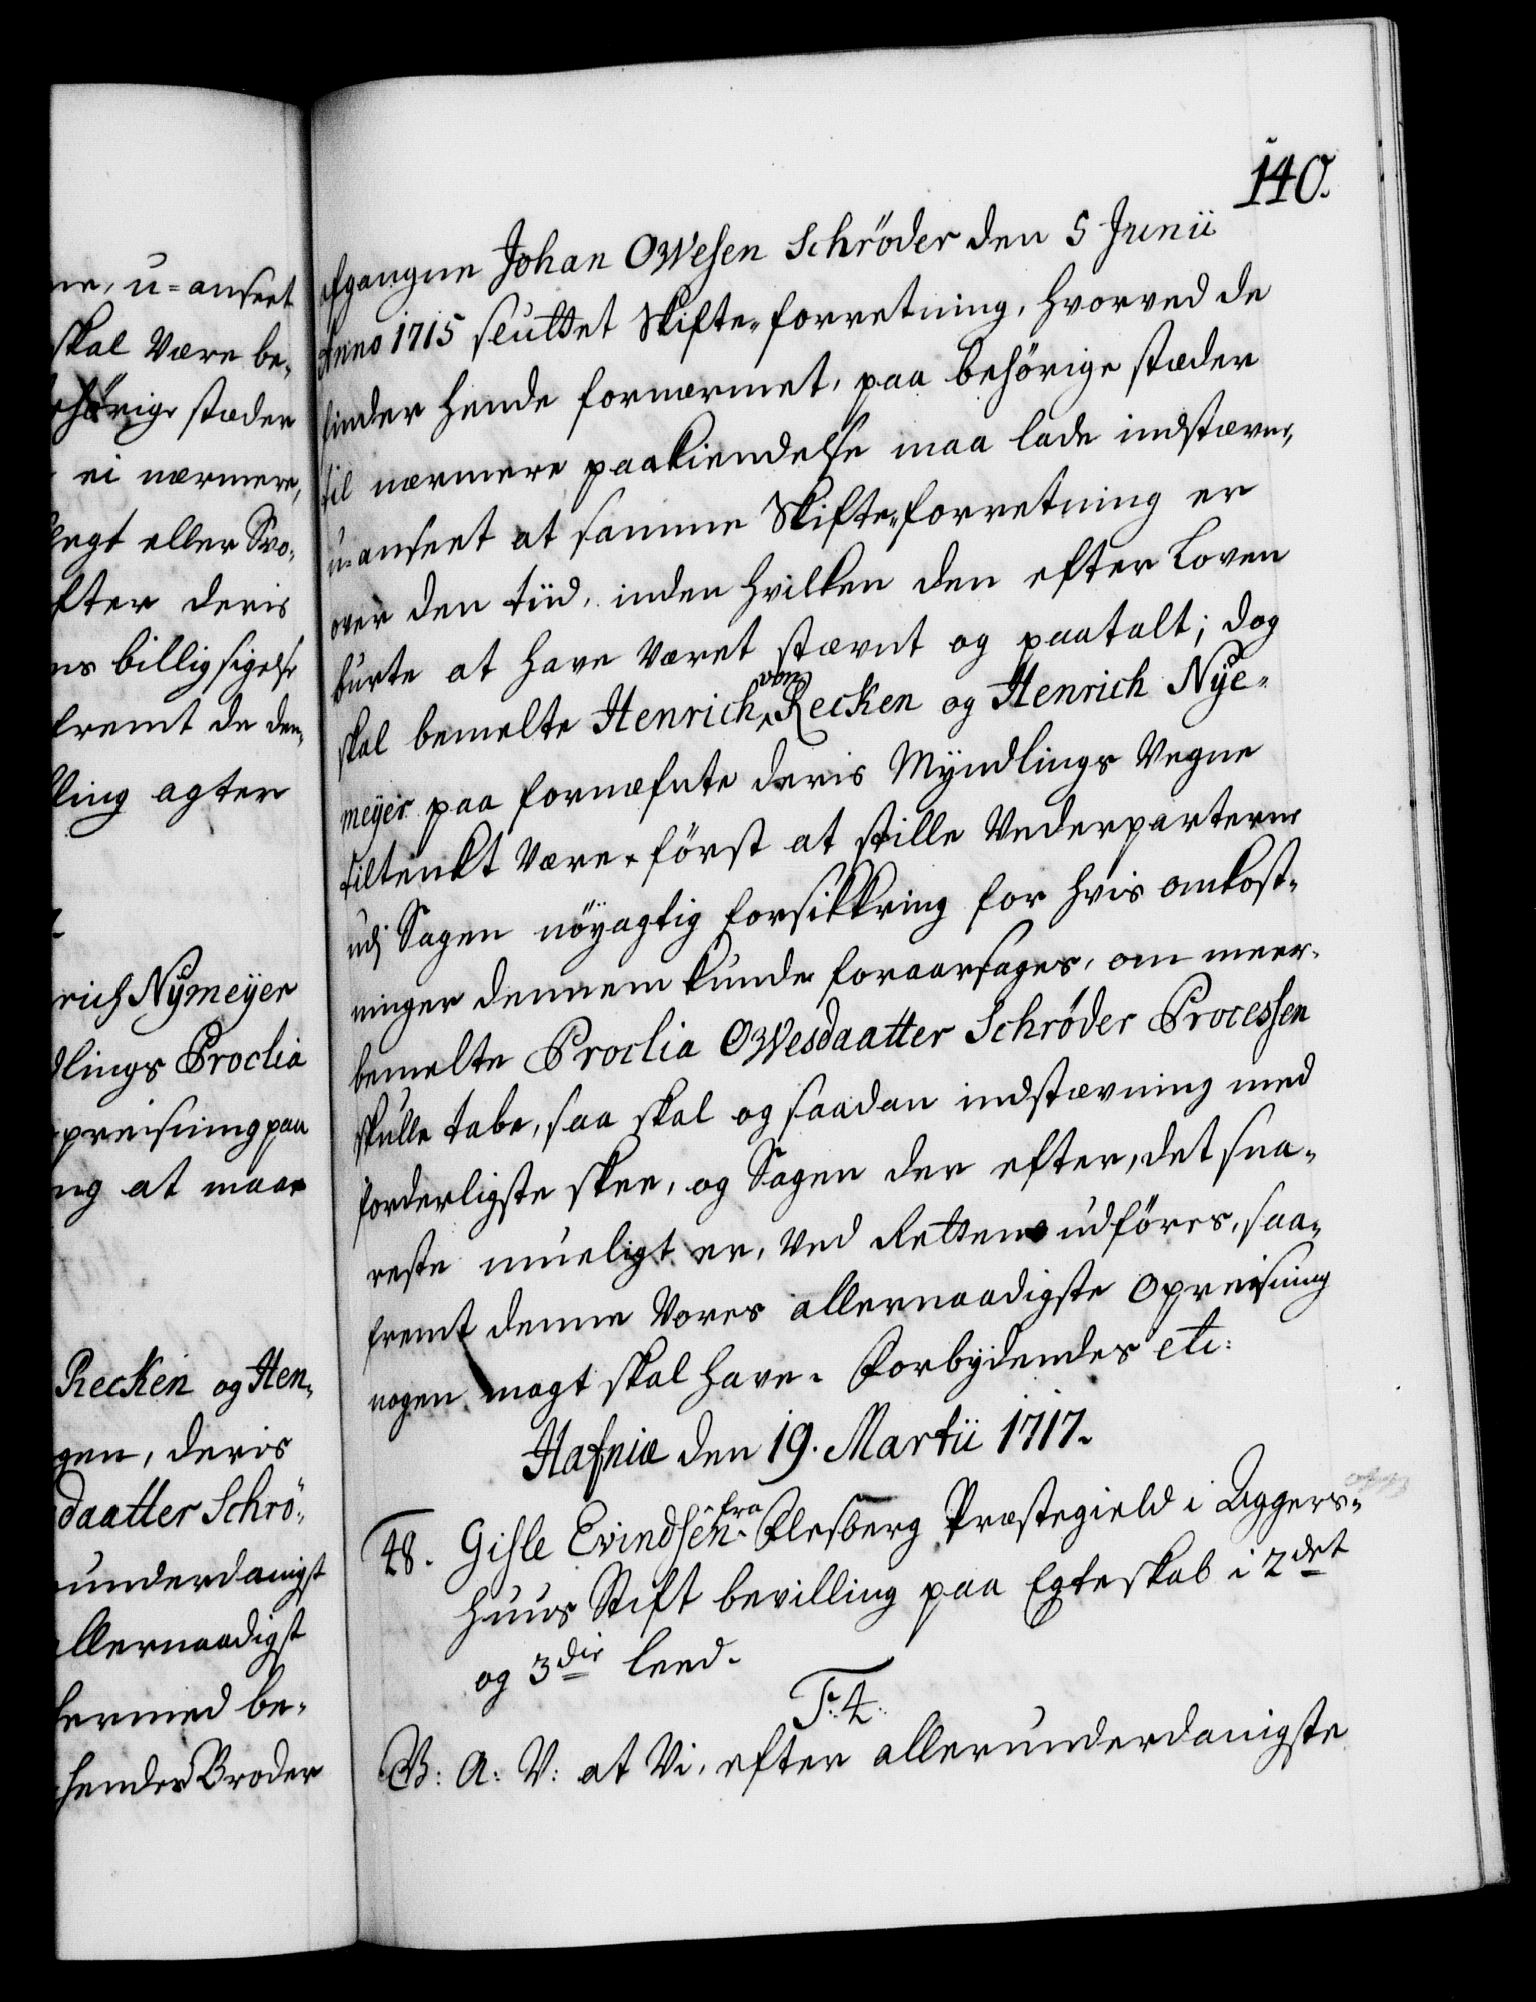 ne, u-anseet
skal være be-
hørige stæder
ei nærmere,
legt eller Svo-
fter deris
ns billig sigelse
fremt de den-
ling agter
rich Nymeyer
dlings Proclia
preisning paa
ng at maae
Recken og Hen-
gen, deris
daatter Schrö-
underdanigst
llernaadigst
hermed be-
hendes Broder
140.
afgangne Johan Owesen Schröder den 5 Junii
Anno 1715 sluttet Skifte-forretning, hvorved de
finder hende fornærmet, paa behörige stæder
til nærmere paakiendelse maa lade indstævne,
u-anseet at samme Skifte-forretning er
over den tiid, inden hvilken den efter Loven
burte at have været stævnt og paatalt; dog
skal bemelte Henrich von Recken og Henrich Nye-
meyer paa fornæfnte deris Myndlings Vegne
tiltenkt være, först at stille Vederparterne
udj Sagen nöyagtig forsikkring for hvis omkost-
ninger dennem kunde foraarsages, om meer-
bemelte Proclia Owesdaatter Schrøder Processen
skulle tabe, saa skal og saadan indstævning med
forderligste skee, og Sagen der efter, det sna-
reste mueligt er, ved Retten udföres, saa-
fremt denne Vores allernaadigste Opreisning
nogen magt skal have. Forbydendes etc:
Hafniæ den 19. Martii 1717.
48. Gisle Evindsen fra Flesberg Præstegield i Aggers-
huus Stift bevilling paa Egteskab i 2det
og 3die Leed.
F: 4.
G: A: V: at Vi, efter allerunderdanigste